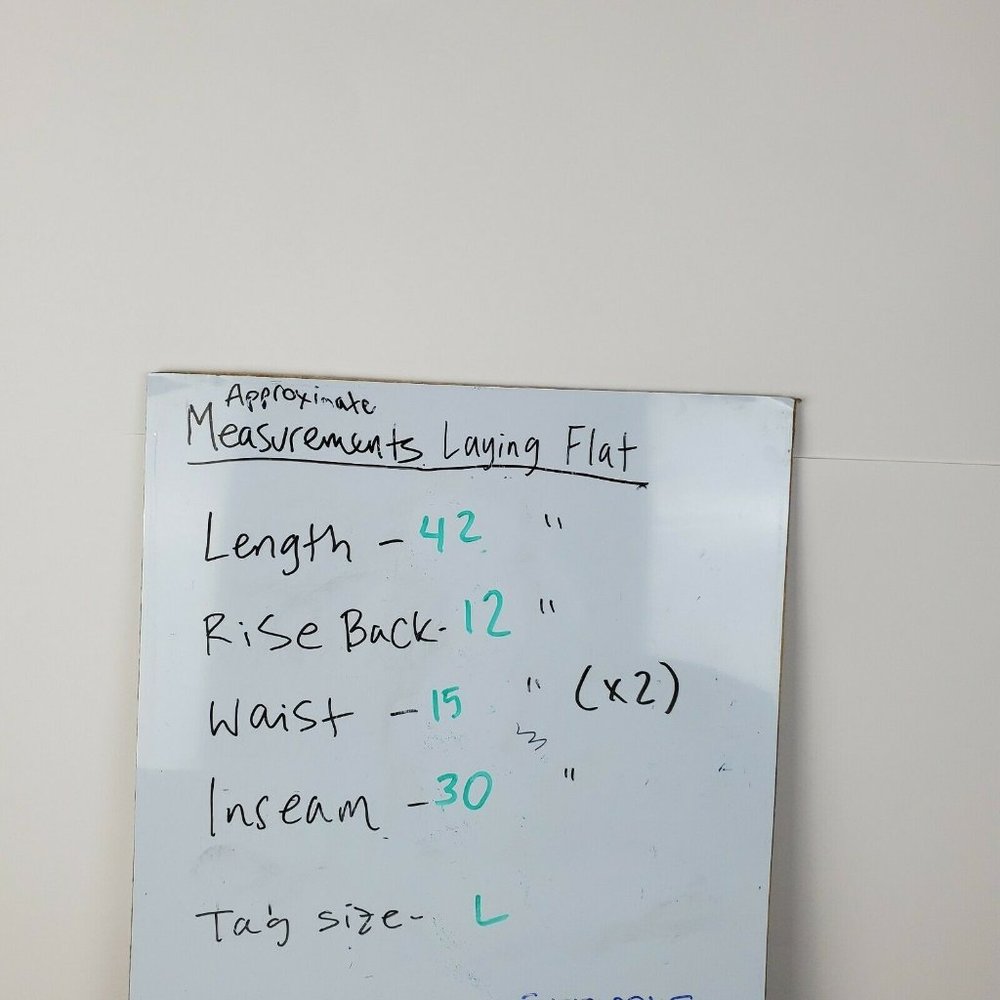 Approximate
Measurements Laying Flat
Length - 42 "
Rise Back - 12 "
Waist - 15 " (x2)
Inseam - 30 "
Tag size - L